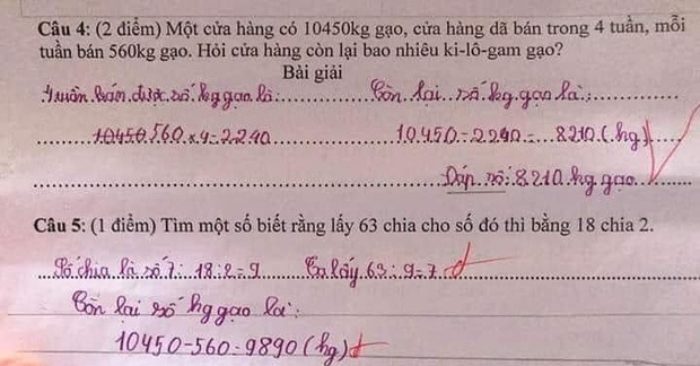 Câu 4: (2 điểm) Một cửa hàng có 10450kg gạo, cửa hàng đã bán trong 4 tuần, mỗi
tuần bán 560kg gạo. Hỏi cửa hàng còn lại bao nhiêu ki-lô-gam gạo?
Bài giải
4 tuần bán được số kg gạo là: Còn lại số kg gạo là:
10450 560 x 4 = 2240 10450 - 2240 = 8210 (kg)
Đáp số: 8210 kg gạo
Câu 5: (1 điểm) Tìm một số biết rằng lấy 63 chia cho số đó thì bằng 18 chia 2.
Số chia là số 7: 18 : 2 = 9 Ta lấy 63 : 9 = 7
Còn lại số kg gạo là:
10450 - 560 = 9890 (kg)